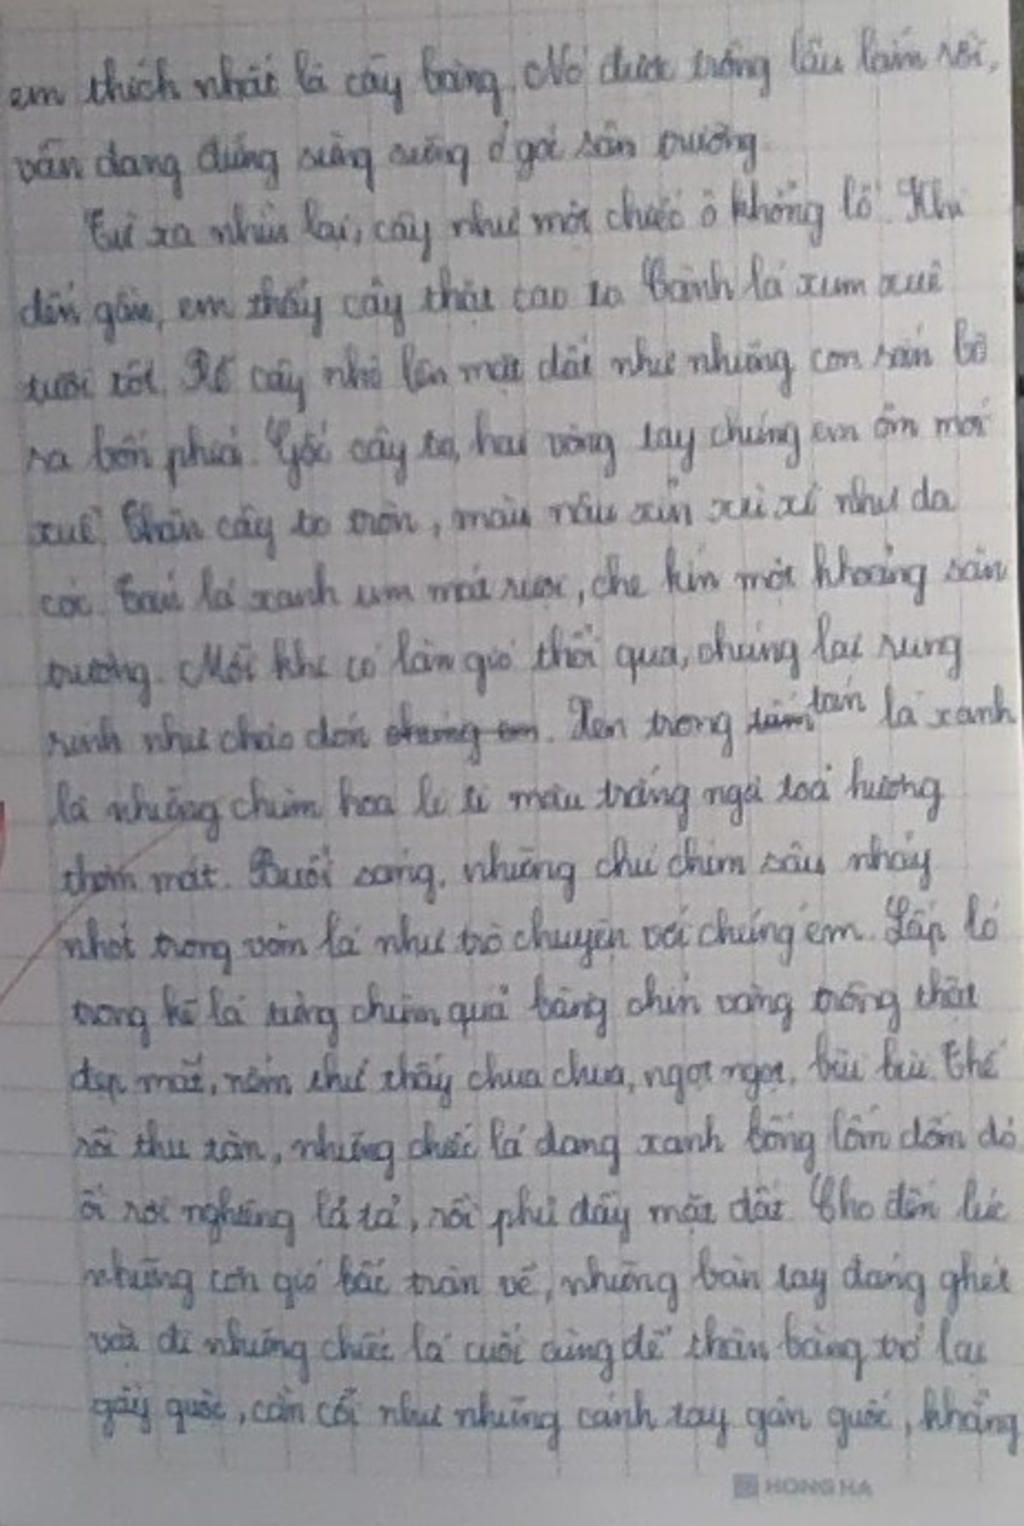 em thích nhất là cây bàng. Nó được trồng lâu lắm rồi,
vẫn đang đứng sừng sững ở góc sân trường.
Từ xa nhìn lại, cây như một chiếc ô khổng lồ. Khi
đến gần, em thấy cây thật cao to. Cành lá xum xuê
tươi tốt. Rễ cây nhô lên mặt đất như những con rắn bò
ra bốn phía. Gốc cây to, hai vòng tay chúng em ôm mới
xuể. Thân cây to tròn, màu nâu xỉn xù xì như da
cóc. Tán lá xanh um mát rượi, che kín một khoảng sân
trường. Mỗi khi có làn gió thổi qua, chúng lại rung
rinh như chào đón chúng em. Xen trong tán lá xanh
là những chùm hoa li ti màu trắng ngà toả hương
thơm mát. Buổi sáng, những chú chim sâu nhảy
nhót trong vòm lá như trò chuyện với chúng em. Lấp ló
trong kẽ lá từng chùm quả bàng chín vàng trông thật
đẹp mắt, nếm thử thấy chua chua, ngọt ngọt, bùi bùi. Thế
rồi thu tàn, những chiếc lá đang xanh bỗng lốm đốm đỏ
ối rơi nghiêng lả tả, rồi phủ đầy mặt đất. Cho đến lúc
những cơn gió bấc tràn về, những bàn tay đáng ghét
vặt đi những chiếc lá cuối cùng để thân bàng trở lại
gầy guộc, cằn cỗi như những cánh tay gân guốc, khẳng
HONG HA